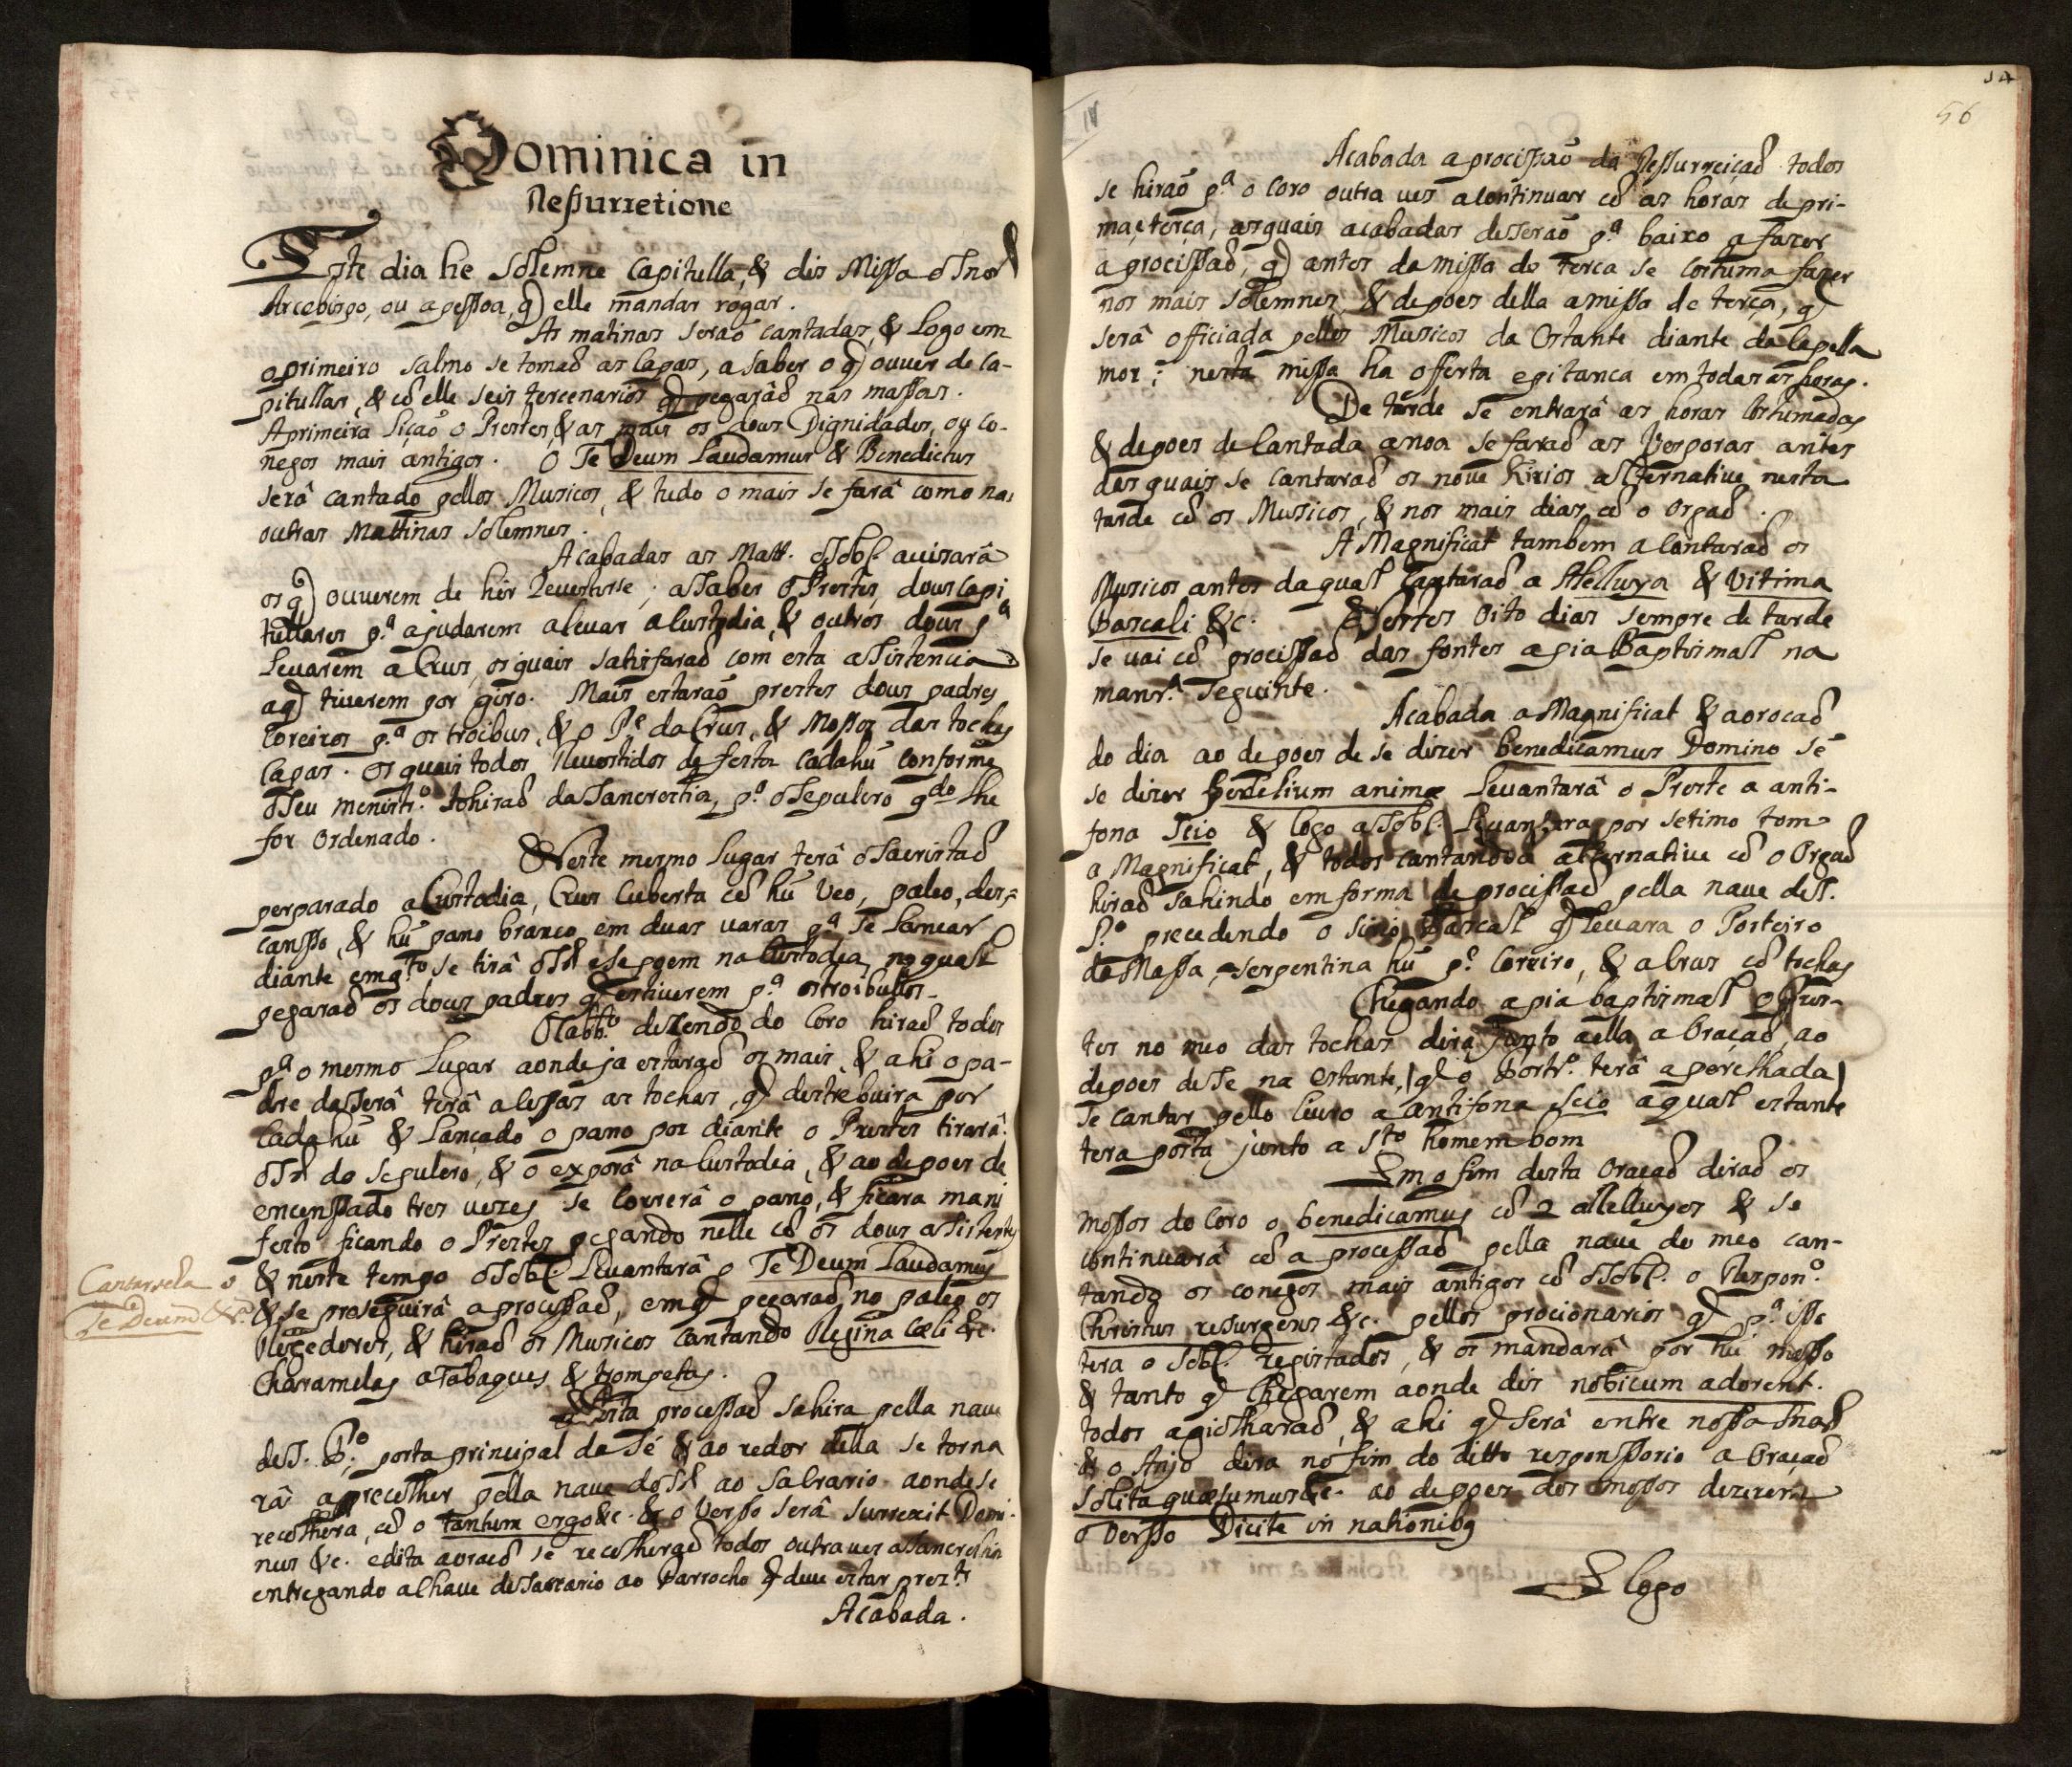 Dominica in
Ressurretione
Este dia he solemne Capitulla, & dis Missa o Snor
Arcebispo, ou a pessoa, q) elle mandar rogar.
As matinas serão cantadas, & Logo em
o primeiro salmo se tomaõ as Capas, a saber o q) ouuer de Ca-
pitullar, & cõ elle seis tercenarios q) pegarâõ nas massas.
A primeira liçaõ o Prestes, & as mais os dous Dignidades, ou Co-
negos mais antigos. O Te Deum Laudamus & Benedictus
serâ cantado pellos Musicos, & tudo o mais se farâ como nas
outras Mattinas solemnes.
Acabadas as Matt. o Sobl. auisarâ
os q) ouuerem de hir Reuestirse; a saber o Prestes, dous Capi
tullares p.ª ajudarem a leuar a Custodia, & outros dous p.ª
Leuarem a Crus, os quais satisfaraõ com esta assistencia
a q) tiuerem por giro. Mais estaraõ prestes dous padres
Coreiros p.ª os troibus, & o P.e da Crus, & Mossos das tochas
Capas. Os quais todos Reuestidos de festa Cada hũ conforme
o seu menistr.º sahiraõ da Sancrestia, p.ª o Sepulcro q.do lhe
for Ordenado.
Neste mesmo lugar terâ o Sacristaõ
perparado a Custodia, Crus Cuberta cõ hũ Veo, paleo, des-
cansso, & hũ pano branco em duas uaras p.ª se Lancar
diante emq.to se tirâ o Sr. e se poem na Custodia, no qual
pegaraõ os dous padres q) estiuerem p.ª os troibullos.
O Cabb.º desendo do Coro hiraõ todos
p.ª o mesmo Lugar aonde ja estaraõ os mais, & ahi o pa-
dre da Serâ terâ alesas as tochas, q) destrebuira por
Cada hũ & Lançado o pano por diante o Prestes tirarâ
o Sr. do sepulcro, & o exporâ na Custodia, & ao depoes de
encenssado tres uezes se Correrâ o pano, & ficara mani
festo ficando o Prestes pegando nelle cõ os dous assistentes
& neste tempo o Sobl. Leuantarâ o Te Deum Laudamus
Cantarsela o
Te Deum &c.
& se proseguirâ a procissaõ, em q) pegaraõ no paleo os
Regedores, & hiraõ os Musicos cantando Regina Cæli &c.
Charamelas atabaques & trompetas.
Esta processaõ sahira pella naue
de S. P.º, porta principal da Sé & ao redor della se torna
râ a precolher pella naue do Sr. ao Sabrario aonde se
recolhera, cõ o tantum ergo &c. & o Versso serâ surrexit Domi-
nus &c. e dita a oracaõ se recolheraõ todos outra ues a Sancrestia
entregando a chaue do Sacrario ao Parrocho q) deue estar prez.te
Acabada.
14
56
Acabada a procissaõ da Ressurreiçaõ todos
se hiraõ p.ª o Coro outra ues a Continuar cõ as horas de pri-
ma, e terça, as quais acabadas desseraõ p.ª baixo a fazer
a procissaõ, q) antes da missa de terca se Costuma fazer
nos mais solemnes, & depoes della a missa de terça, q)
serâ officiada pellos Musicos da Estante diante da Capella
mor; nesta missa ha offerta e pitanca em todas as horas.
De tarde se entrarâ as horas Costumadas
& depoes de Cantada a noa se faraõ as Vesporas antes
das quais se Cantaraõ os noue Kirios alternatiue nesta
tarde cõ os Musicos, & nos mais dias cõ o Orgaõ.
A Magnificat tambem a Cantaraõ os
Musicos antes da qual Cantaraõ a Alelluya & Vitima
Pascali &c. & Nestes oito dias sempre de tarde
se uai cõ procissaõ das fontes a pia Baptismal na
manr.ª seguinte.
Acabada a Magnificat & a oracaõ
do dia ao depoes de se dizer benedicamus Domino sẽ
se dizer fidelium animæ Leuantarâ o Preste a anti-
fona Scio & logo o Sobl. Leuantara por setimo tom
a Magnificat, & todos cantandoa alternatiue cõ o Orgaõ
hiraõ sahindo em forma de procissaõ pella naue de S.
P.º precedendo o Sirio Pascal q) leuara o Porteiro
da Massa, a serpentina hũ p.e Coreiro, & a Crus cõ tochas
Chegando a pia baptismal o Pres-
tes no meo das tochas dira junto a ella a Oraçaõ, ao
depoes de se na Estante, (q) o Portr.º terâ aparelhada)
se cantar pello liuro a antifona Scio a qual estante
tera posta junto a S.to homem bom
Em o fim desta Oraçaõ diraõ os
mossos do Coro o benedicamus cõ 2 alleluyas & se
continuarâ cõ a processaõ pella naue do meo can-
tando os conegos mais antigos cõ o Sobl. o Respon.º
Christus resurgens &c. pellos procionarios q) p.ª isso
tera o Sobl. registados, & os mandarâ por hũ mosso
& tanto q) Chegarem aonde dis nobicum adorent.
todos agiolharaõ, & ahi q) serâ entre nossa Snrã
& o Anjo dira no fim do ditto responssorio a Oraçaõ
solita quæsumus &c. ao depoes dos mossos dizerem
o Versso Dicite in nationibg
E logo